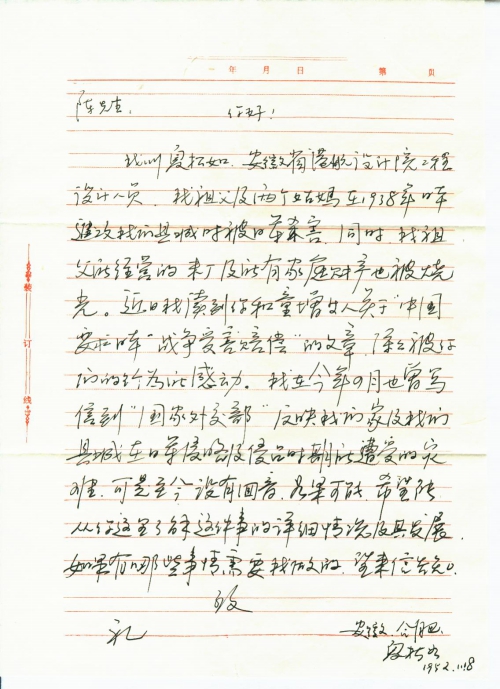 年 月 日 第 页
陈先生, 您好!
我叫殷松如, 安徽省港航设计院工程
设计人员. 我祖父及两个姑妈在1938年日军
进攻我们县城时被日军杀害. 同时, 我祖
父所经营的米厂及所有家庭财产也被烧
光。近日我读到你和童增等人关于“中国
要求日本“战争受害赔偿”的文章, 深深被你
们的行为所感动。我在今年9月也曾写
信到“国家外交部”反映我们家及我们
县城在日军侵略及侵占时期所遭受的灾
难, 可是至今没有回音. 如果可能, 希望能
从你这里了解这件事的详细情况及其发展.
如果有哪些事情需要我做的, 望来信告知.
致
礼
安徽.合肥.
装 订 线